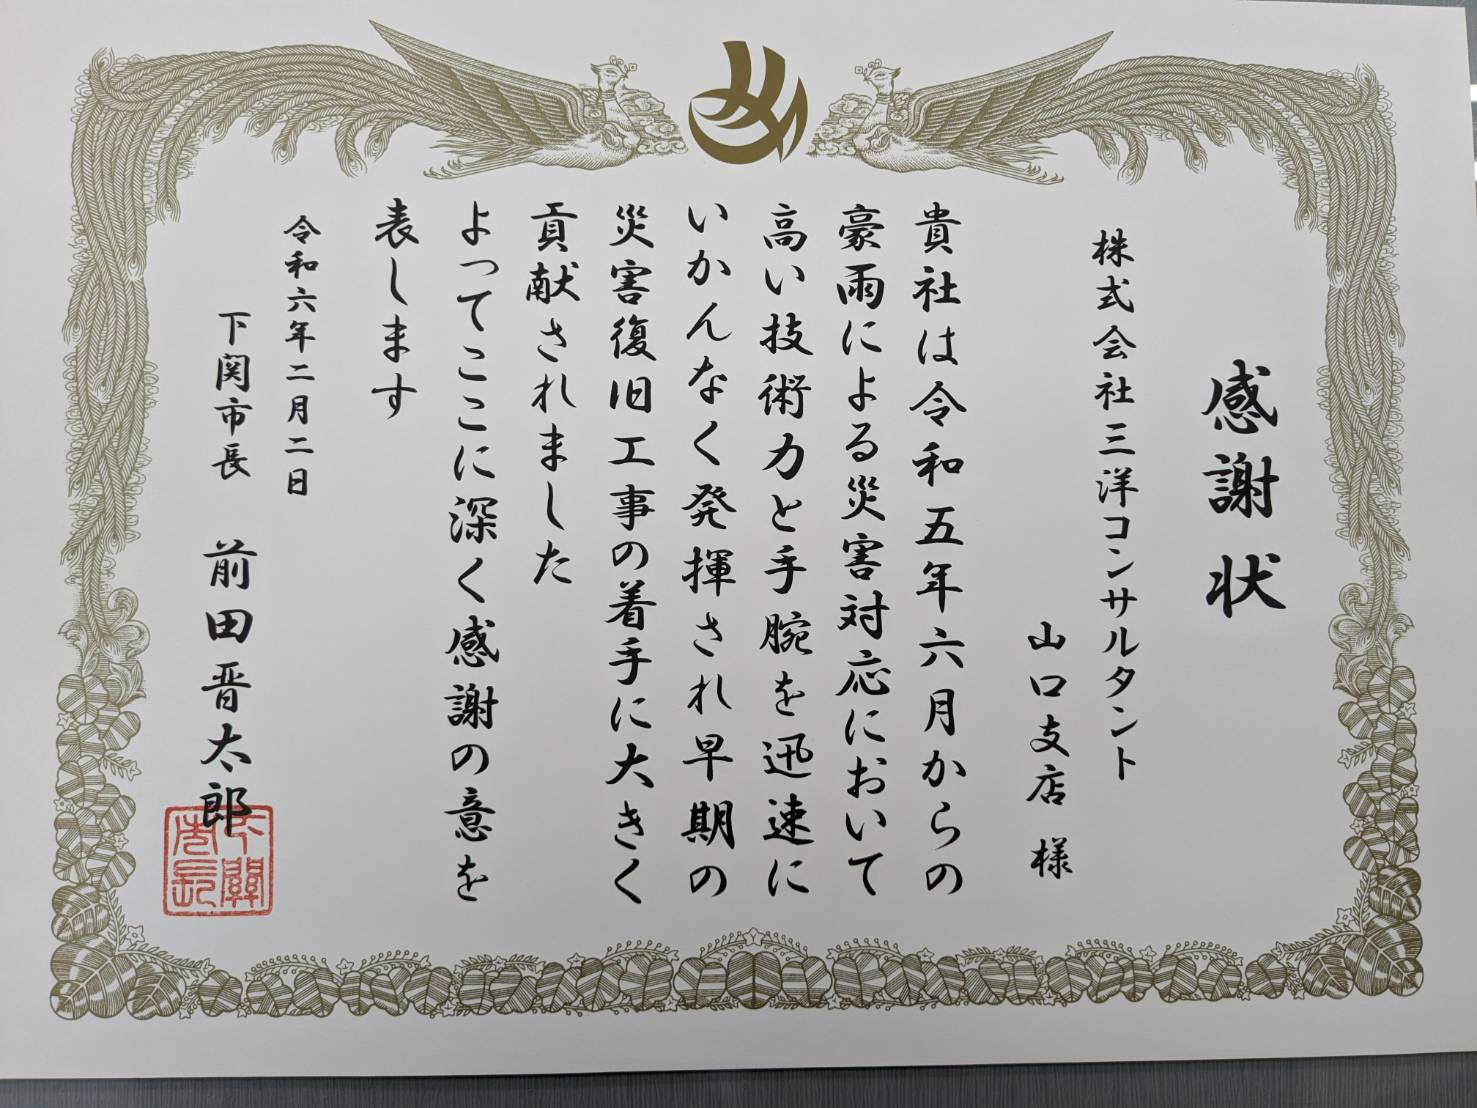 感謝状
株式会社三洋コンサルタント
山口支店 様
貴社は令和五年六月からの
豪雨による災害対応において
高い技術力と手腕を迅速に
いかんなく発揮され早期の
災害復旧工事の着手に大きく
貢献されました
よってここに深く感謝の意を
表します
令和六年二月二日
下関市長 前田晋太郎
下關
市長